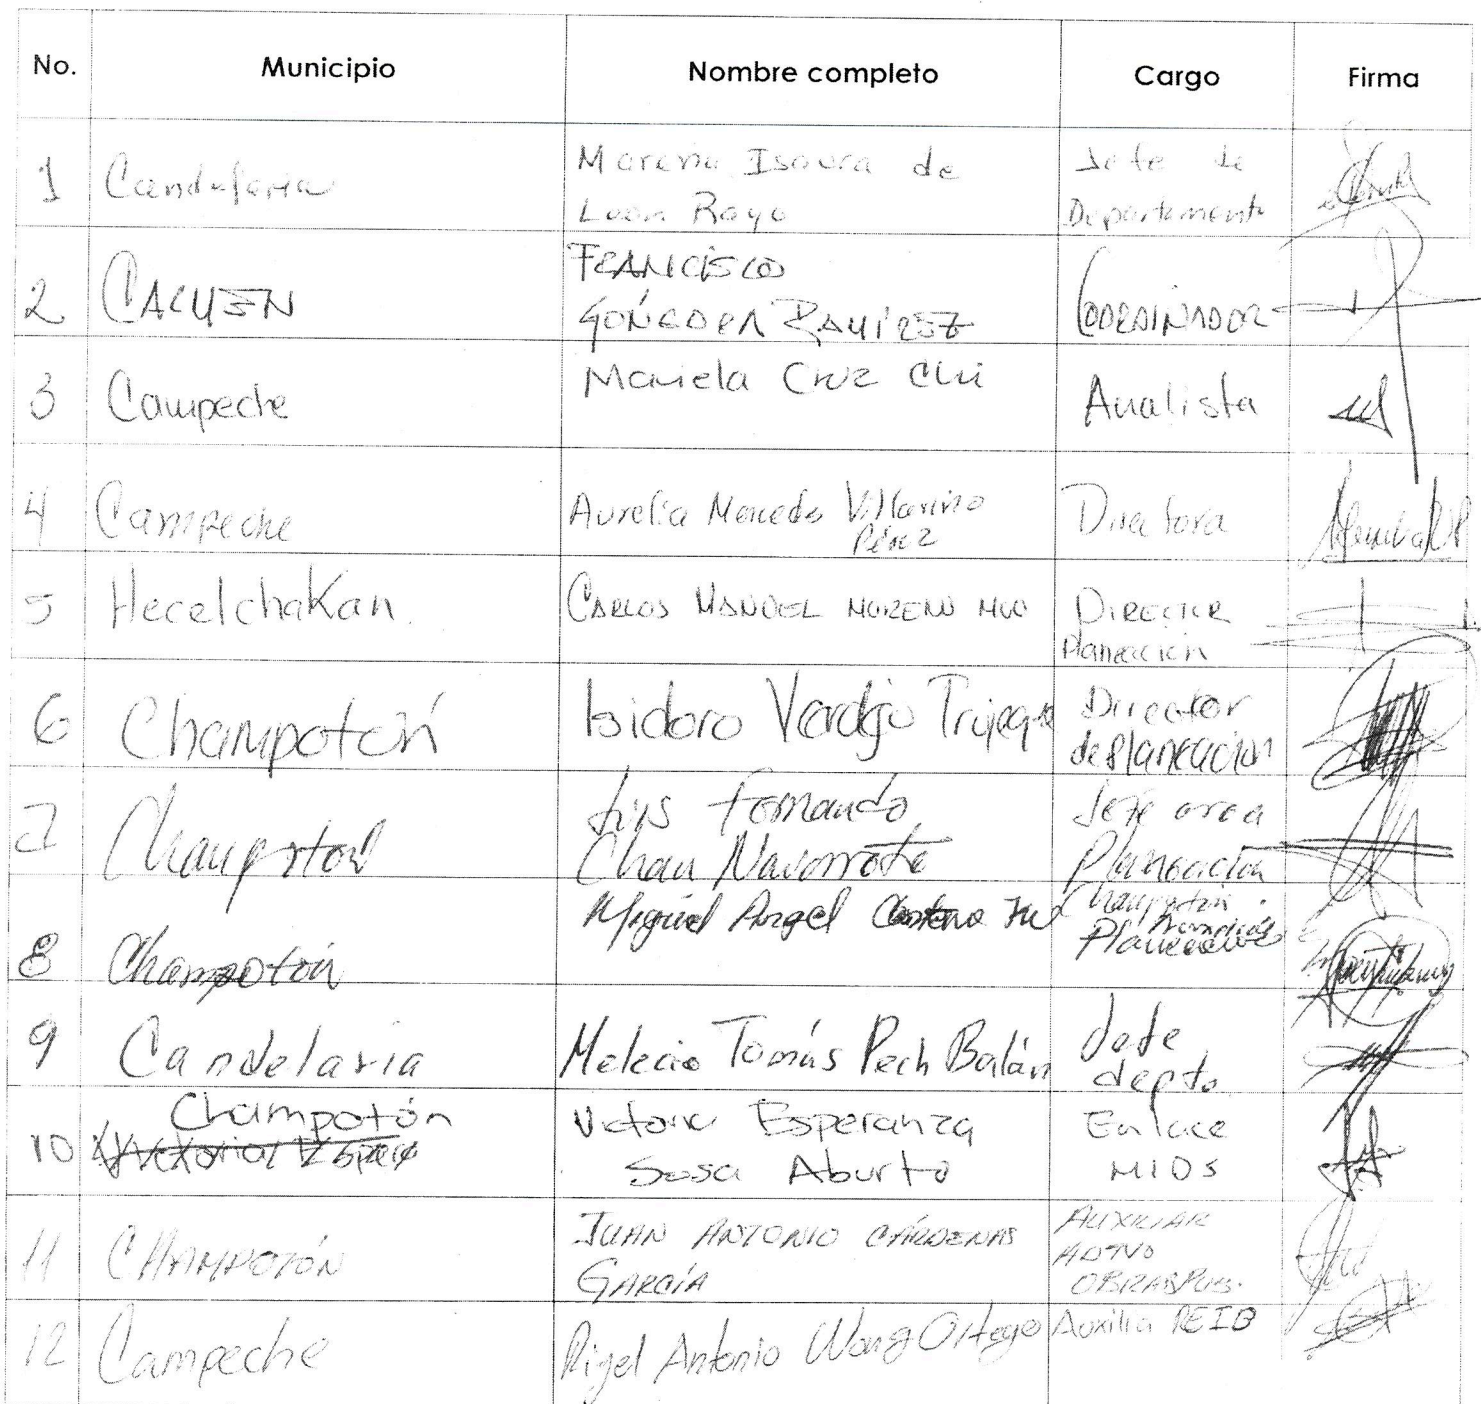 No. Municipio Nombre completo Cargo Firma
1 Candelaria Morena Isaura de Jefe de
León Rayo Departamento
2 CARMEN FRANCISCO
GÓNGORA RAMIREZ COORDINADOR
3 Campeche Mariela Cruz Chi Analista
4 Campeche Aurelia Mercedes Villarino Directora
Pérez
5 Hecelchakan. CARLOS MANUEL MORENO MUO DIRECTOR
Planeación
6 Champotón Isidoro Verdejo Trujeque Director
de Planeación
7 Champotón Luis Fernando Jefe area
Chan Navarrete Planeación
8 Champotón Miguel Angel Champotón
Planeación
9 Candelaria Melecio Tomás Pech Balán Jefe
depto.
10 Champotón Victoria Esperanza Enlace
Sosa Aburto MIDS
11 CHAMPOTÓN JUAN ANTONIO CÁRDENAS AUXILIAR
GARCÍA ADTVO
OBRAS PUB.
12 Campeche Rigel Antonio Wong Ortego Auxilia REIB